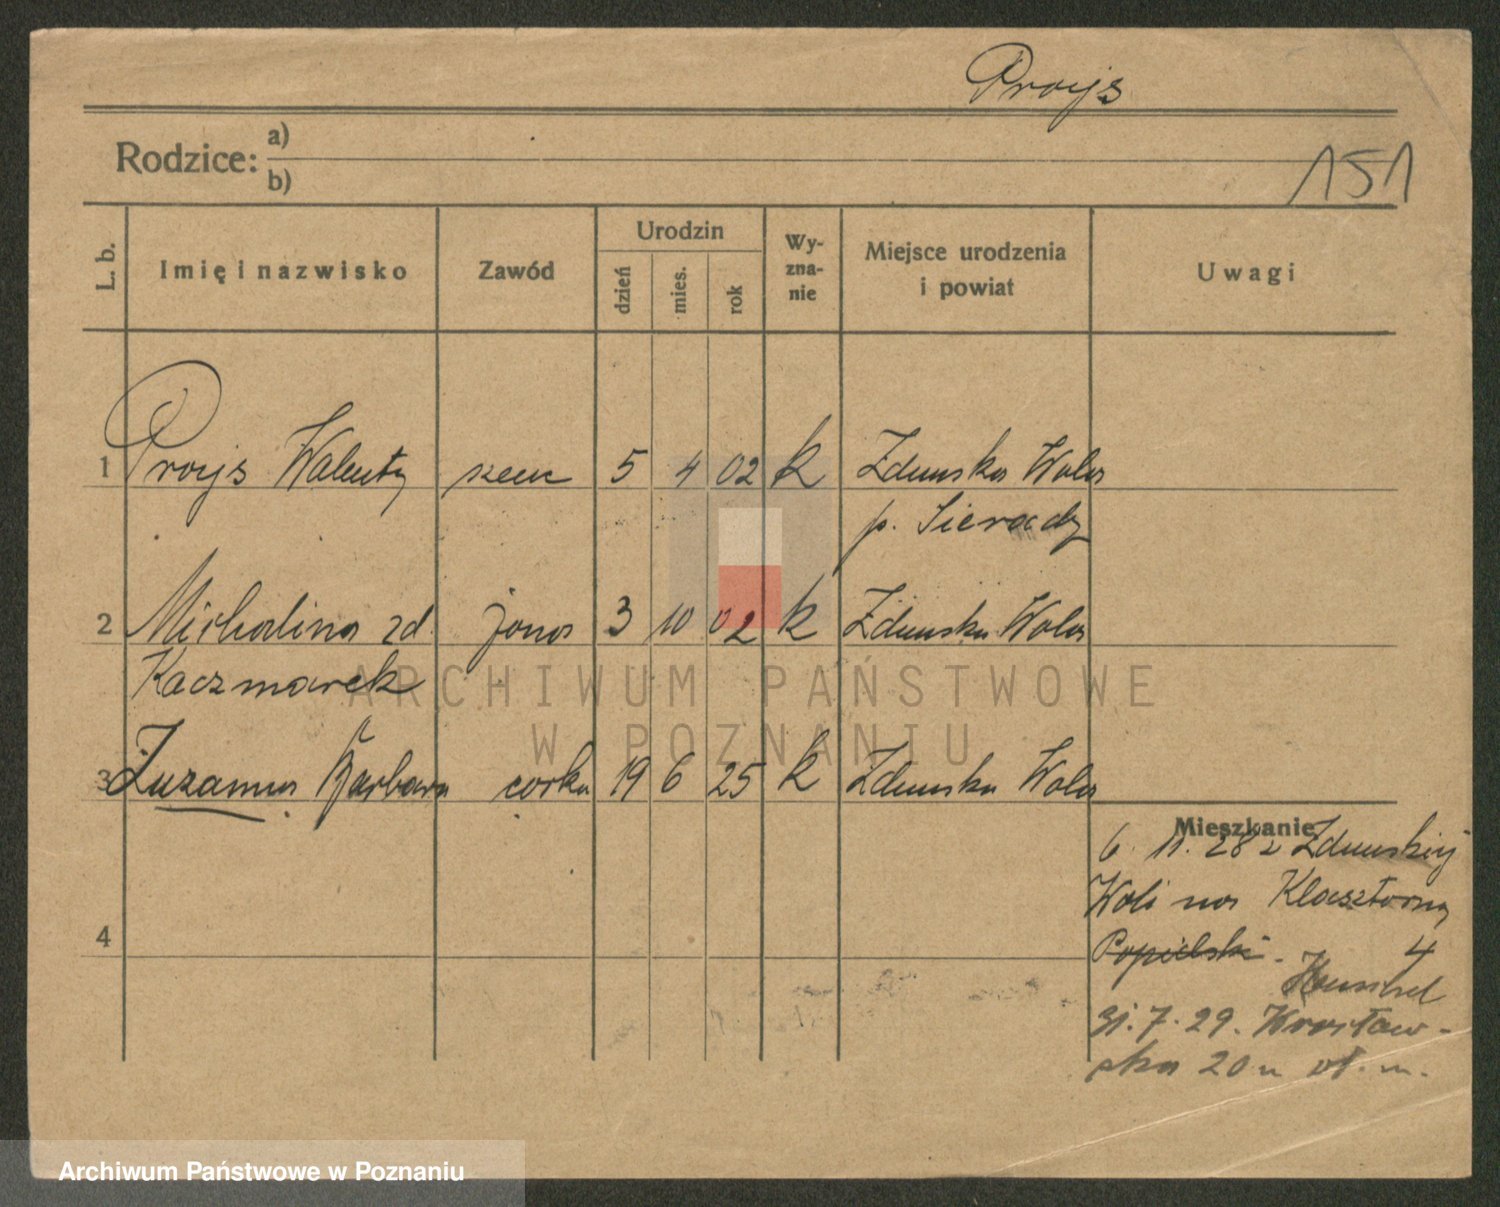 Proijs
Rodzice:
a)
b)
151
L. b.
Imię i nazwisko
Zawód
Urodzin
dzień
mies.
rok
Wy-
zna-
nie
Miejsce urodzenia
i powiat
Uwagi
1 Proijs Walenty szewc 5 4 02 k Zduńska Wola
p. Sieradz
2 Michalina zd. żona 3 10 02 k Zduńska Wola
Kaczmarek
3 Zuzanna Barbara córka 19 6 25 k Zduńska Wola
Mieszkanie
6. 11. 28 z Zduńskiej
Woli na Klasztorną
Popielski. 4
31. 7. 29. Wrocław-
ska 20 u wł. m.
4
ARCHIWUM PAŃSTWOWE
W POZNANIU
Archiwum Państwowe w Poznaniu